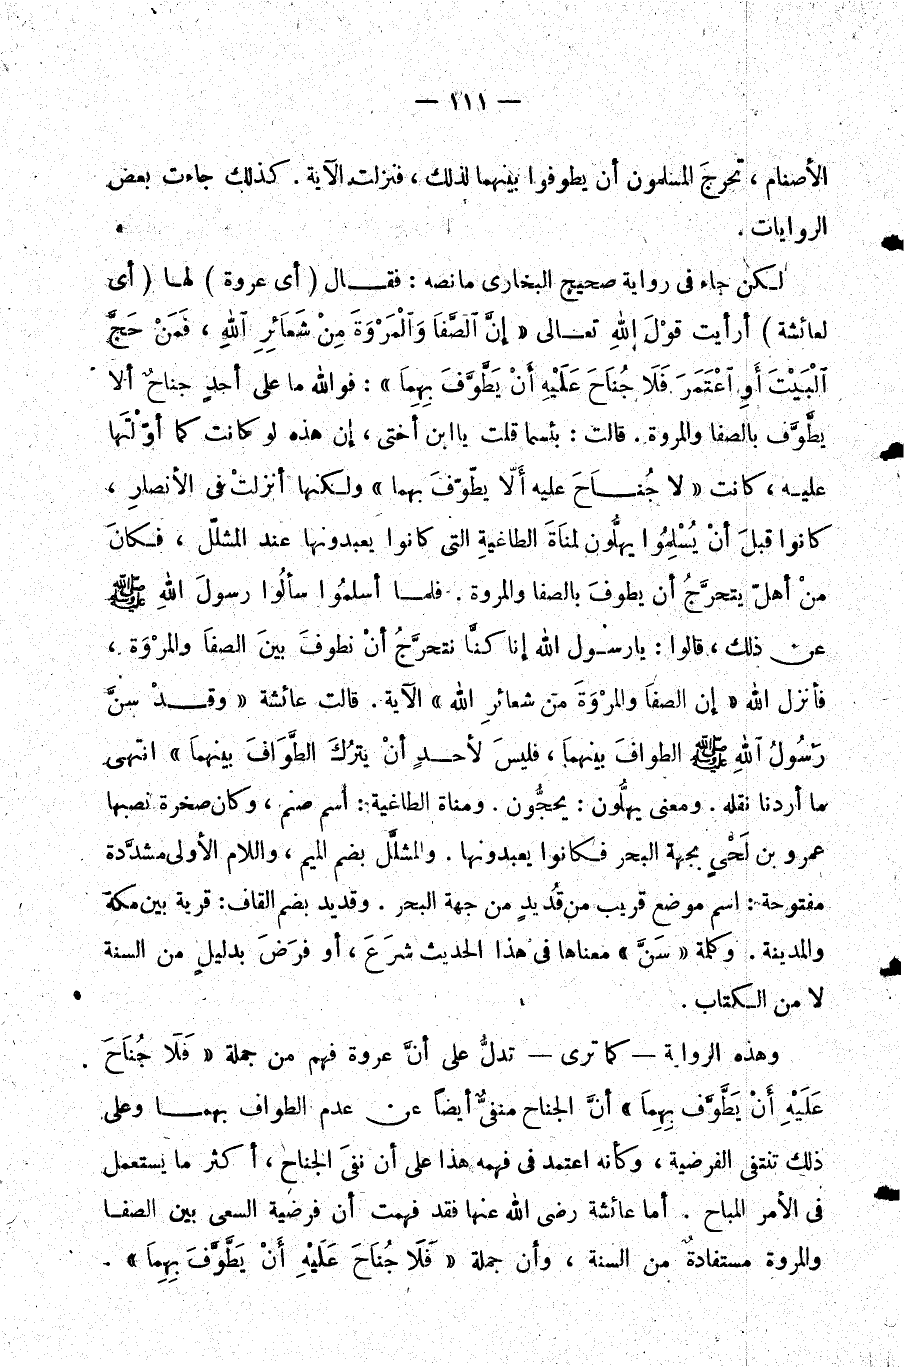 — ١١١ —
الأصنام ، تحرجَ المسلمون أن يطوفوا بينهما لذلك ، فنزلت الآية . كذلك جاءت بعض
الروايات .
لـكن جاء فى رواية صحيح البخارى ما نصه : فقـــال ( أى عروة ) لهـا ( أى
لعائشة ) أرأيت قوْلَ اللهِ تعـالى « إِنَّ ٱلصَّفَا وَٱلْمَرْوَةَ مِنْ شَعَائِرِ ٱللهِ ، فَمَنْ حَجَّ
ٱلْبَيْتَ أَوِ ٱعْتَمَرَ فَلَا جُنَاحَ عَلَيْهِ أَنْ يَطَّوَّفَ بِهِمَا » : فوالله ما على أحدٍ جناحٌ ألا
يطَّوَّف بالصفا والمروة . قالت : بئسما قلت يا ابن أختى ، إن هذه لو كانت كما أوّلْتَها
عليـه ، كانت « لا جُنـــاحَ عليه ألّا يطّوّفَ بهما » ولـكنها أنزلتْ فى الأنصارِ ،
كانوا قبلَ أنْ يُسْلِمُوا يهلُّون لمنَاةَ الطاغيةِ التى كانوا يعبدونها عند المشلّل ، فـكانَ
منْ أهلّ يتحرَّجُ أن يطوفَ بالصفا والمروة . فلمـــا أسلمُوا سألُوا رسولَ اللهِ ﷺ
عن ذلك ، قالوا : يارسـول الله إنا كنَّا نتحرَّجُ أنْ نطوفَ بينَ الصفاَ والمرْوَة ،
فأنزل الله « إن الصفاَ والمرْوَةَ من شعائرِ الله » الآية . قالت عائشة « وقـــدْ سنَّ
رَسُولُ ٱللهِ ﷺ الطوافَ بينهماَ ، فليسَ لأحـدٍ أنْ يترُكَ الطَّوَافَ بينهماَ » انتهى
ما أردنا نقله . ومعنى يهلُّون : يحجُّون . ومناة الطاغية : أسم صنم ، وكان صخرة نصبها
عمرو بن لَحْىٍ بجهة البحر فـكانوا يعبدونها . والمشلَّل بضم الميم ، واللام الأولى مشدَّدة
مفتوحة : اسم موضع قريب من قُديدٍ من جهة البحر . وقديد بضم القاف : قرية بين مكة
والمدينة . وكلمة « سَنَّ » معناها فى هذا الحديث شرَعَ ، أو فرَضَ بدليلٍ من السنة
لا من الـكتاب .
وهذه الرواية — كما ترى — تدلُّ على أنَّ عروة فهم من جملة « فَلَا جُنَاحَ
عَلَيْهِ أَنْ يَطَّوَّف بِهِمَا » أنَّ الجناح منفىٌّ أيضاً عن عدم الطواف بهمـــا وعلى
ذلك تنتفى الفرضية ، وكأنه اعتمد فى فهمه هذا على أن نفىَ الجناح ، أكثر ما يستعمل
فى الأمر المباح . أما عائشة رضى الله عنها فقد فهمت أن فرضية السعى بين الصفـا
والمروة مستفادةٌ من السنة ، وأن جملة « فَلَا جُنَاحَ عَلَيْهِ أَنْ يَطَّوَّفَ بِهِمَا » .